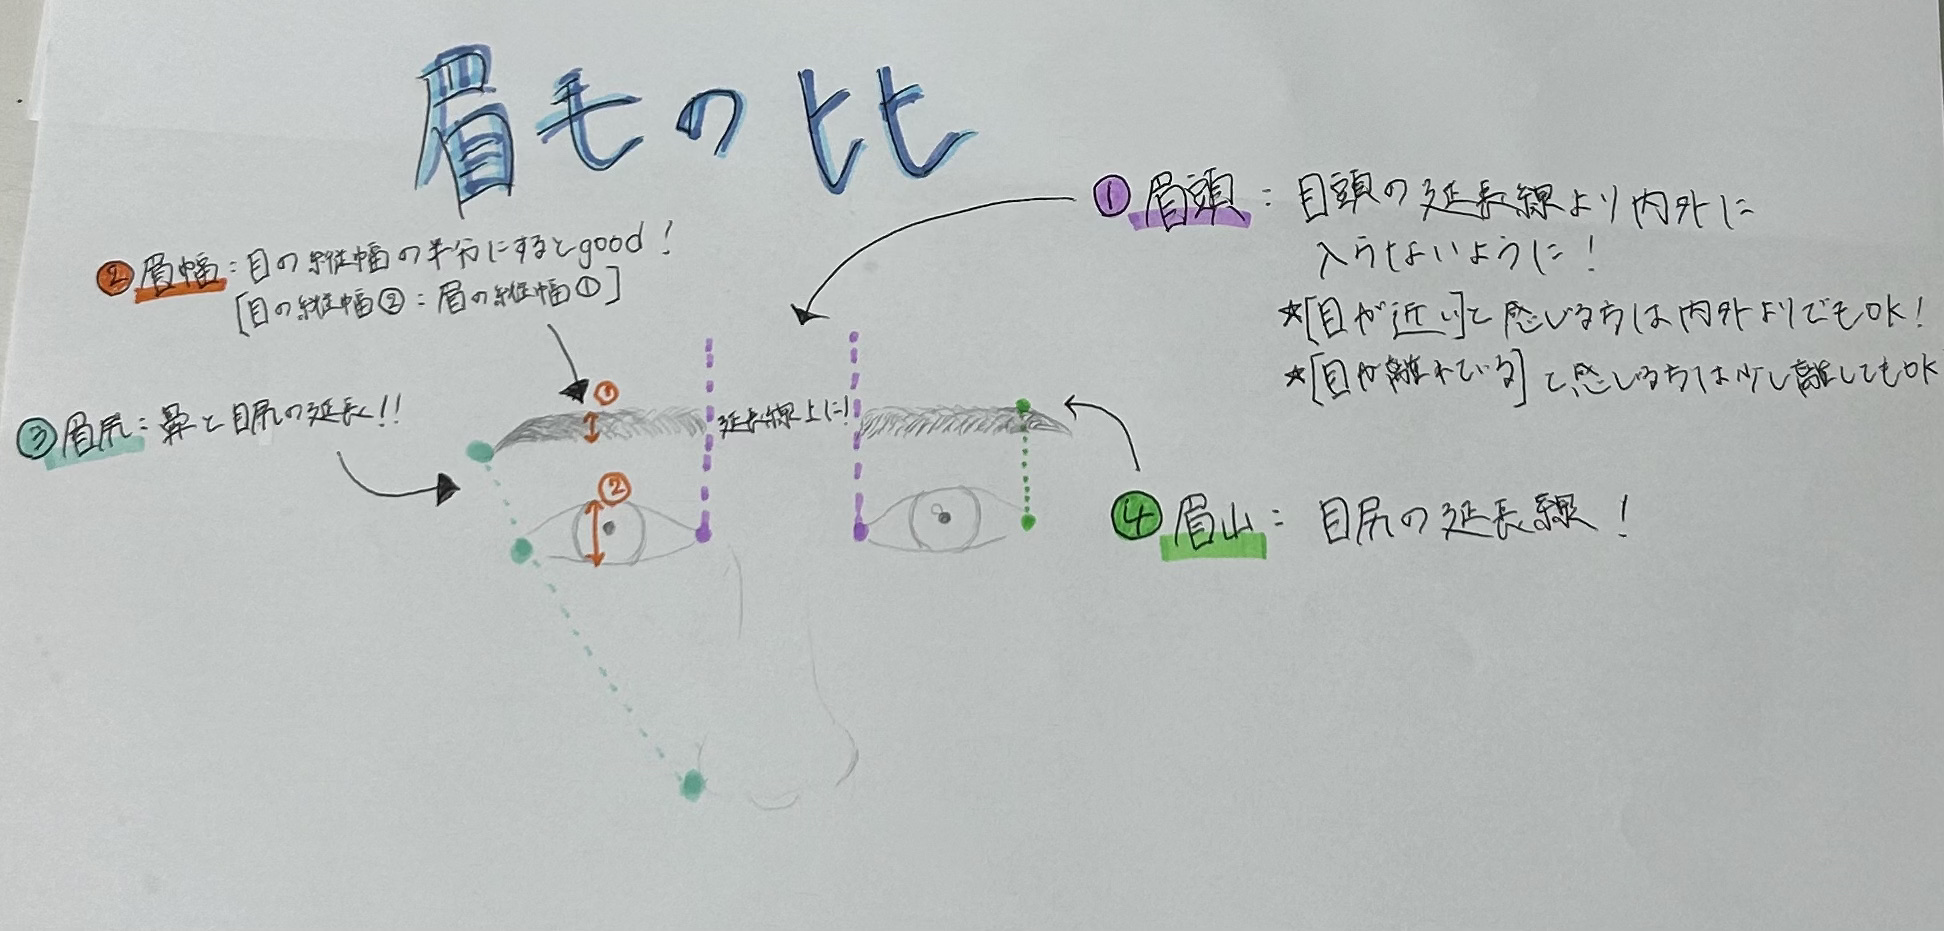 眉毛の比
①眉頭：目頭の延長線より内外に
入らないように！
★[目が近い]と感じる方は内外よりでもOK！
★[目が離れている]と感じる方は少し離してもOK
②眉幅：目の縦幅の半分にするとgood！
[目の縦幅②：眉の縦幅①]
③眉尻：鼻と目尻の延長!!
①
延長線上に！
②
④眉山：目尻の延長線！